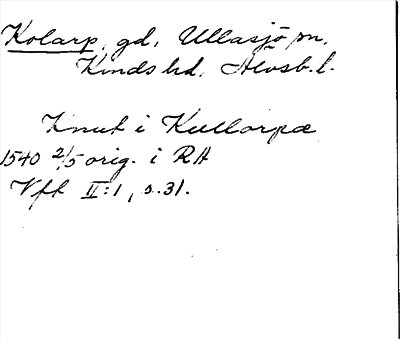 Kolarp, gd, Ullasjö sn,
Kinds hd, Älvsb. l.
Knut i Kullorpæ
1540 2/5 orig. i RA
Vfk II:1, s. 31.